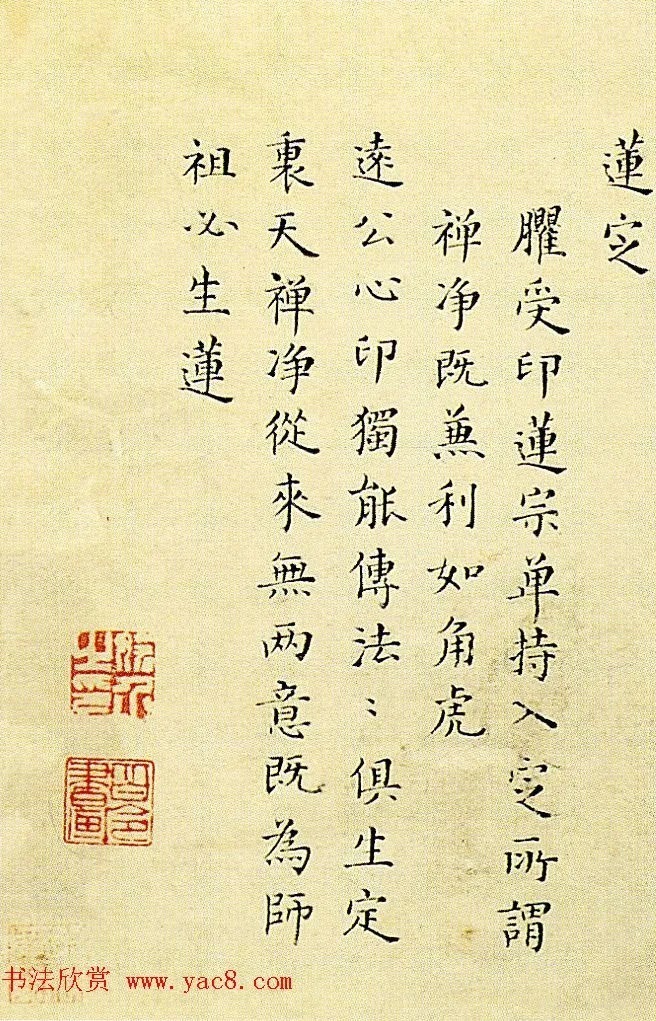 蓮定
臞受印蓮宗单持入定所謂
禅净既蒹利如角虎
遠公心印獨能傳法〻俱生定
裏天禅净從來無两意既為師
祖必生蓮
书法欣赏 www.yac8.com